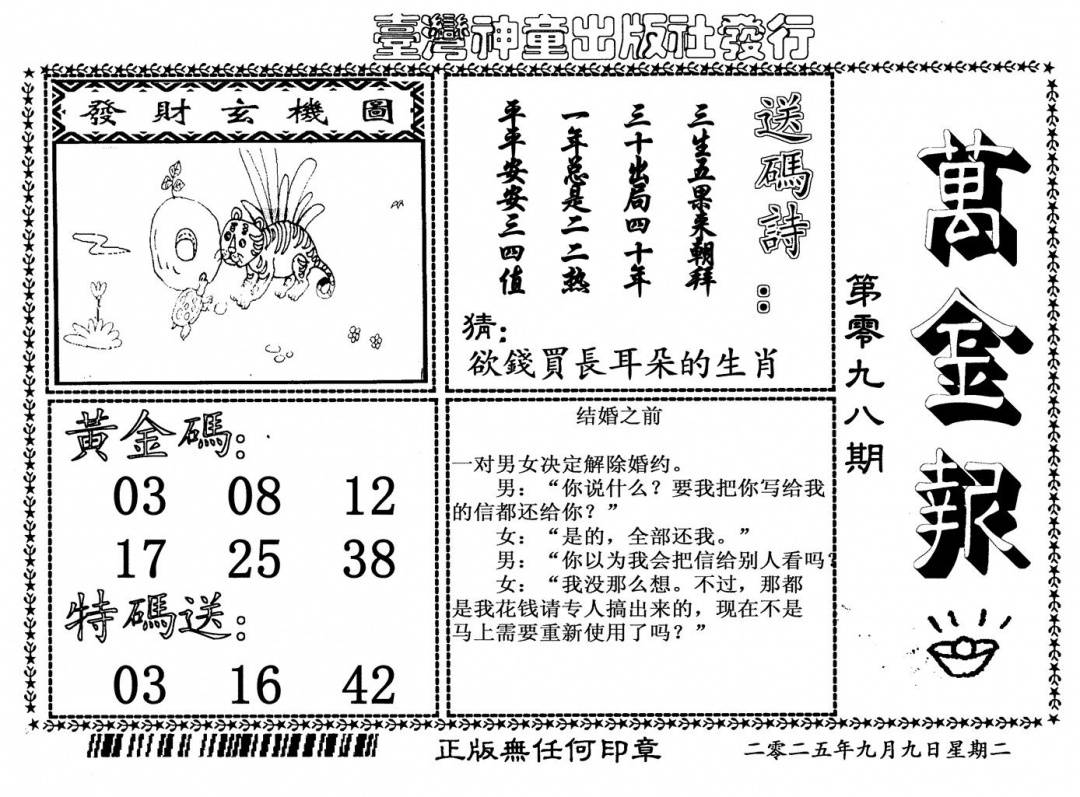 臺灣神童出版社發行
萬金報
第零九八期
發財玄機圖
送碼詩：
三生五果来朝拜
三十出局四十年
一年总是二二热
平平安安三四值
猜：
欲錢買長耳朵的生肖
黃金碼：
03 08 12
17 25 38
特碼送：
03 16 42
结婚之前
一对男女决定解除婚约。
男：“你说什么？要我把你写给我
的信都还给你？”
女：“是的，全部还我。”
男：“你以为我会把信给别人看吗？
女：“我没那么想。不过，那都
是我花钱请专人搞出来的，现在不是
马上需要重新使用了吗？”
正版無任何印章
二零二五年九月九日星期二